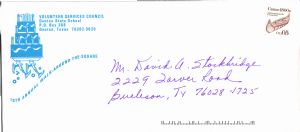 VOLUNTEER SERVICES COUNCIL
Denton State School
P.O. Box 368
Denton, Texas 76202-0368
10TH ANNUAL WALK-AROUND-THE-SQUARE
Mr. David A. Stockbridge
2229 Tarver Road
Burleson, Tx 76028-1725
Canoe 1800s
USA .05